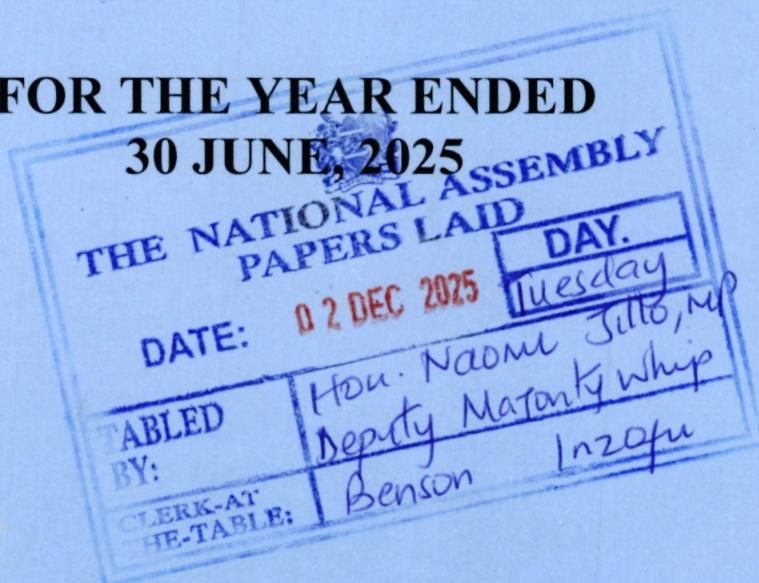 FOR THE YEAR ENDED
30 JUNE, 2025
THE NATIONAL ASSEMBLY
PAPERS LAID
DAY.
Tuesday
DATE: 02 DEC 2025
TABLED BY:
Hon. Naomi Jillo, MP
Deputy Majority Whip
CLERK-AT
THE-TABLE:
Benson Inzofu